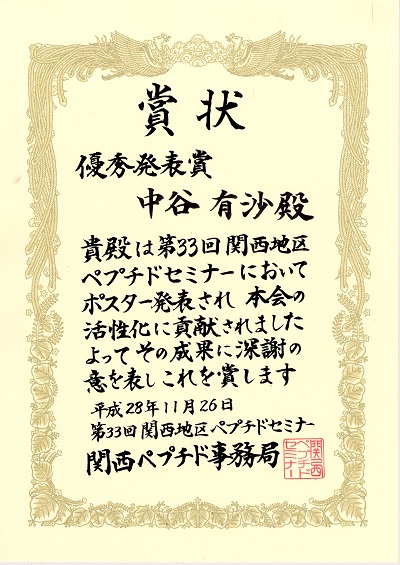 賞状
優秀発表賞
中谷 有沙殿
貴殿は第33回関西地区
ペプチドセミナーにおいて
ポスター発表され 本会の
活性化に貢献されました
よって その成果に深謝の
意を表し これを賞します
平成28年11月26日
第33回関西地区ペプチドセミナー
関西ペプチド事務局
関西
ペプチド
セミナー